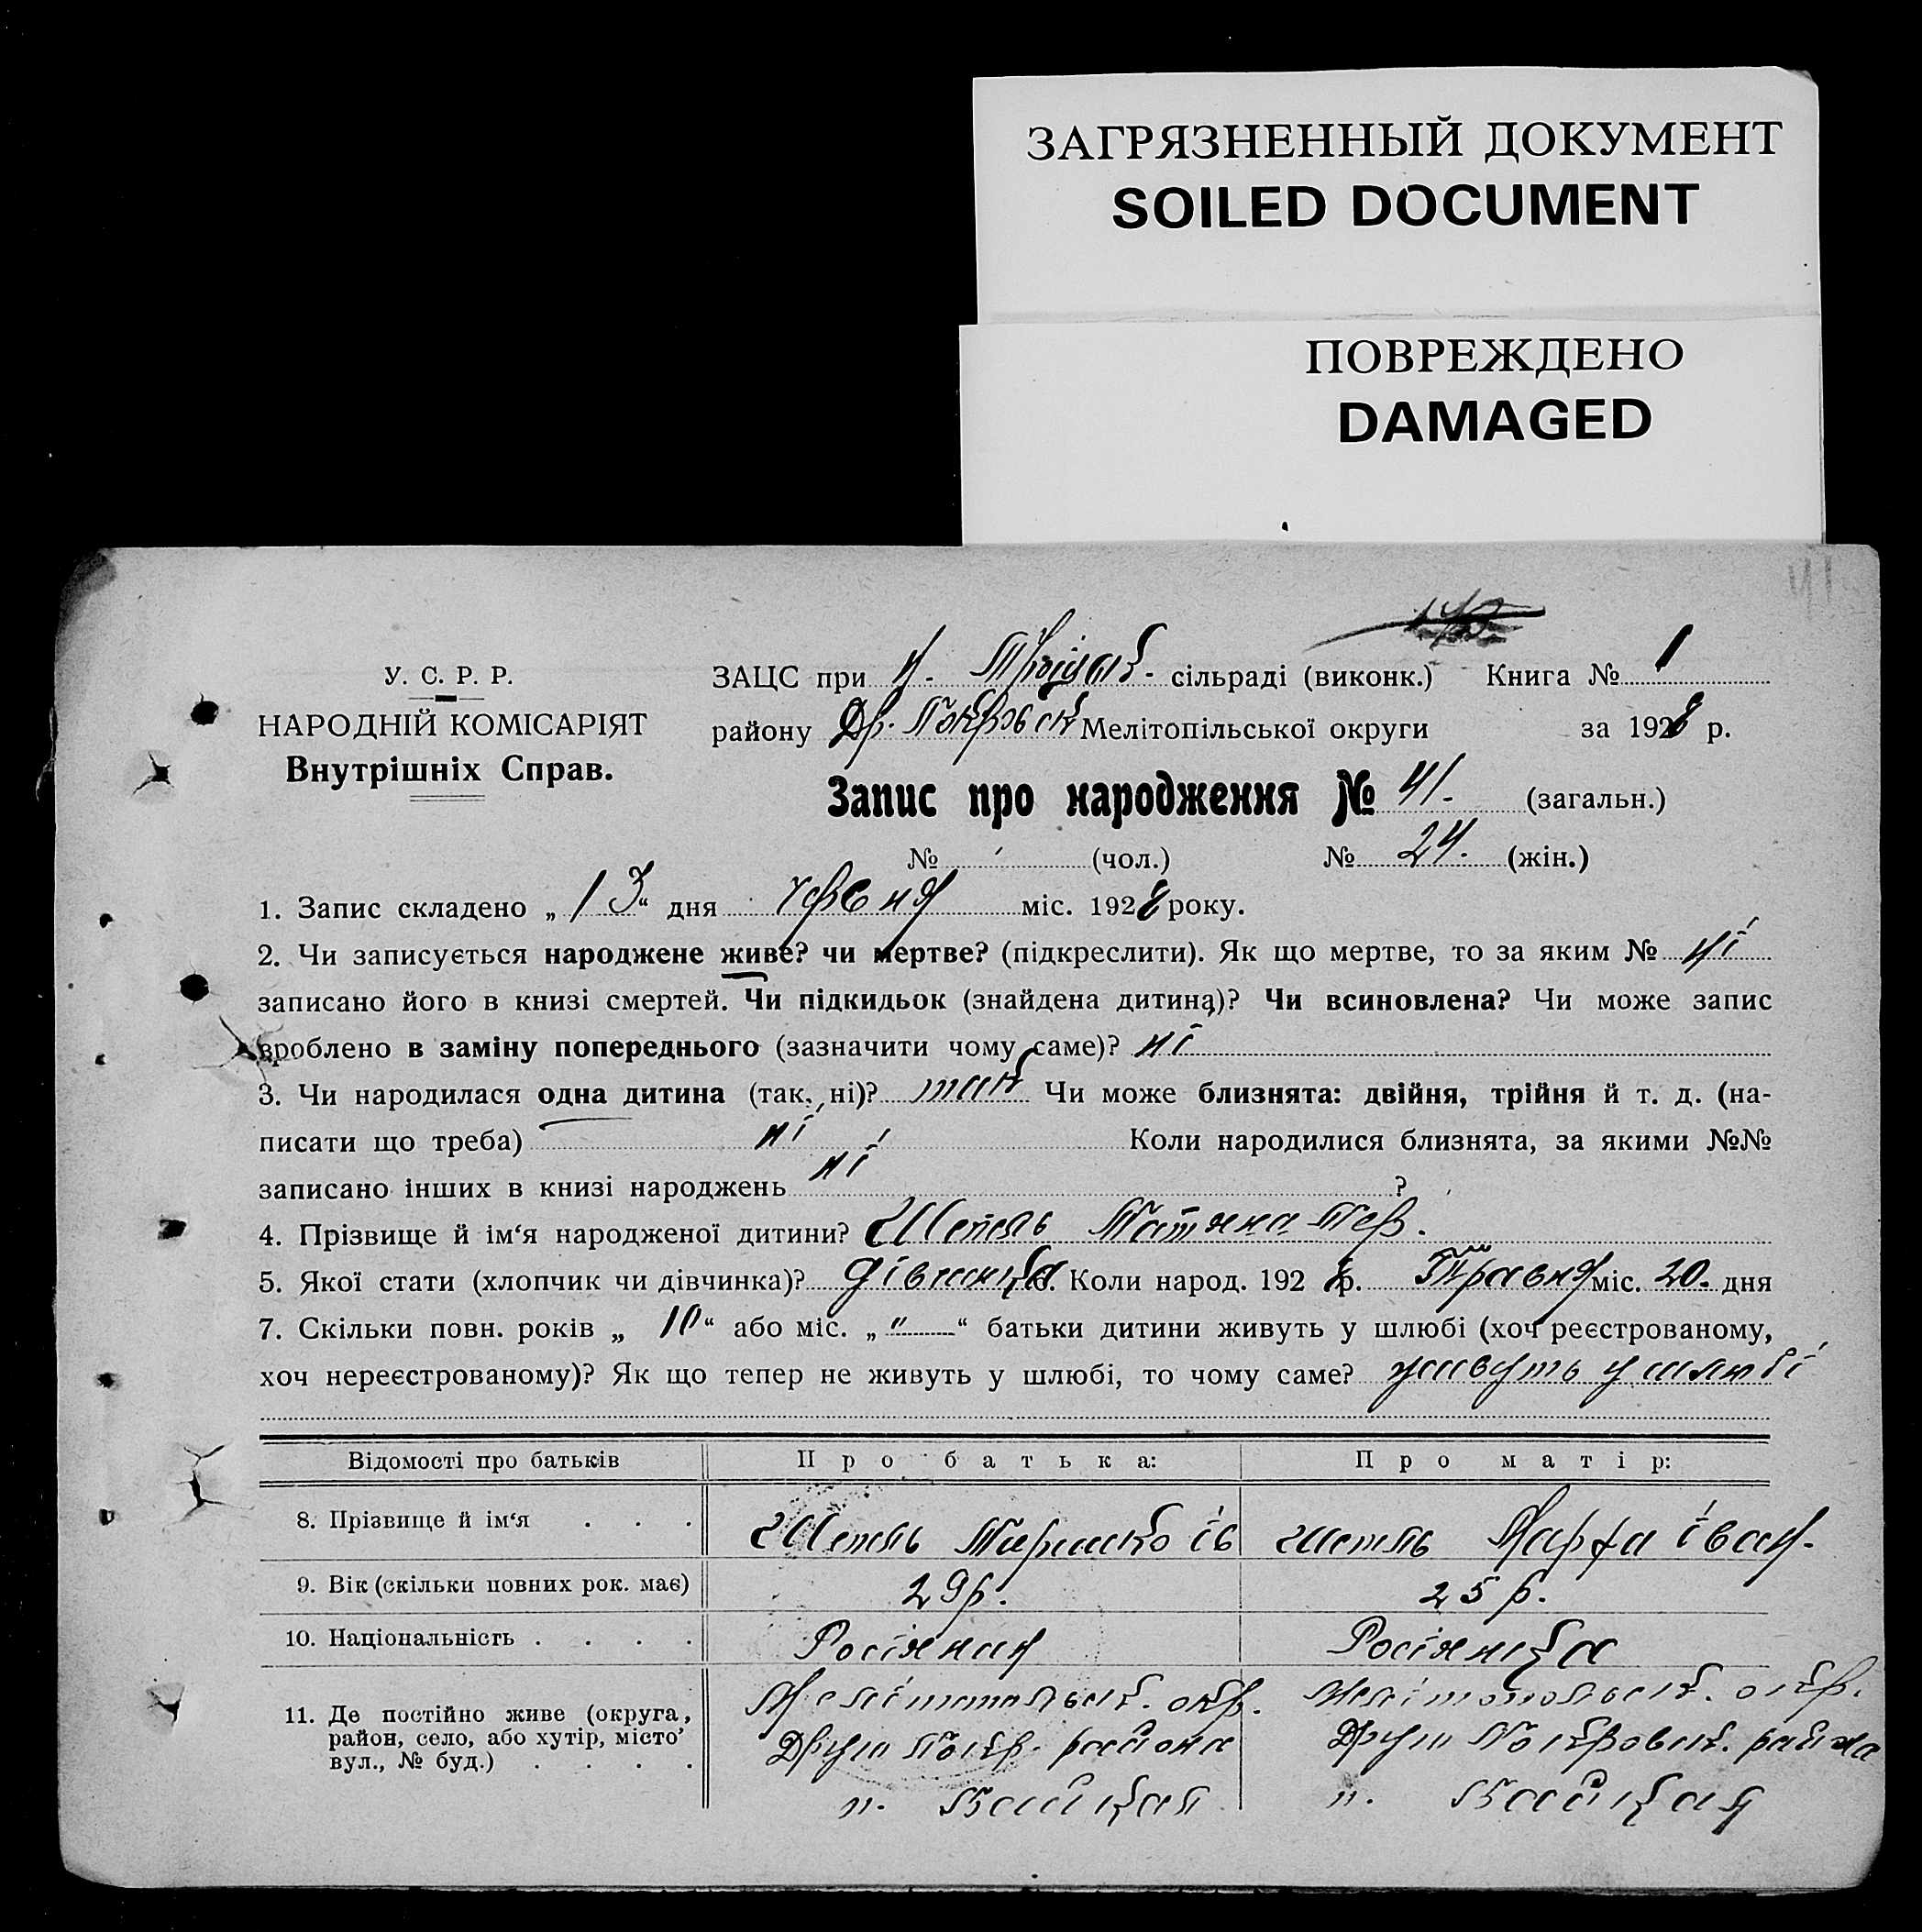 ЗАГРЯЗНЕННЫЙ ДОКУМЕНТ
SOILED DOCUMENT
ПОВРЕЖДЕНО
DAMAGED
41
У. С. Р. Р.
НАРОДНІЙ КОМІСАРІЯТ
Внутрішніх Справ.
ЗАЦС при Н- Троїцьк- сільраді (виконк.) Книга № 1
району Др. Покровськ Мелітопільської округи за 1928 р.
Запис про народження № 41. (загальн.)
№ (чол.) № 24. (жін.)
1. Запис складено „13“ дня червня міс. 1928 року.
2. Чи записується народжене живе? чи мертве? (підкреслити). Як що мертве, то за яким № ні
записано його в книзі смертей. Чи підкидьок (знайдена дитина)? Чи всиновлена? Чи може запис
зроблено в заміну попереднього (зазначити чому саме)? ні
3. Чи народилася одна дитина (так, ні)? так Чи може близнята: двійня, трійня й т. д. (на-
писати що треба) ні Коли народилися близнята, за якими №№
записано інших в книзі народжень ні ?
4. Прізвище й ім‘я народженої дитини? Татяна
5. Якої стати (хлопчик чи дівчинка)? дівчинка. Коли народ. 1928 р. Травня міс. 20. дня
7. Скільки повн. років „10“ або міс. „"“ батьки дитини живуть у шлюбі (хоч реєстрованому,
хоч нереєстрованому)? Як що тепер не живуть у шлюбі, то чому саме? живуть у шлюбі
Відомості про батьків Про батька: Про матір:
8. Прізвище й ім‘я . . . Ів Марфа Іван.
9. Вік (скільки повних рок. має) 29 р. 25 р.
10. Національність . . . . Росіянин Росіянка
11. Де постійно живе (округа, Мелітопольськ. окр. Мелітопольськ. окр.
район, село, або хутір, місто Друг Покр. района Друг Покровськ. района
вул., № буд.) . . . .